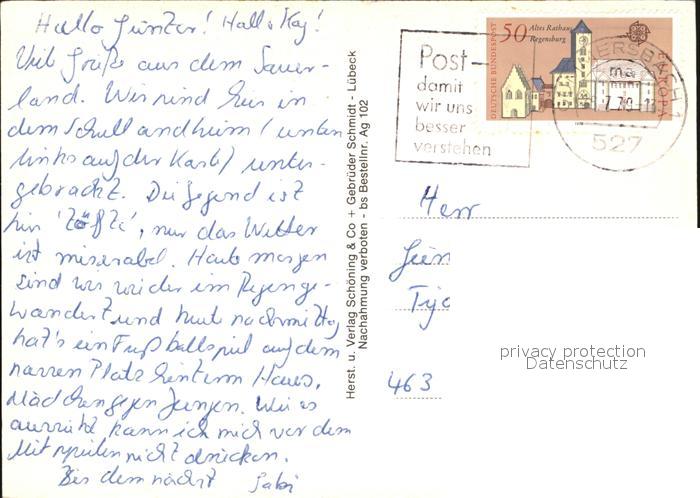 Hallo Günter! Hallo Kay!
Viele Grüße aus dem Sauer-
land. Wir sind hier in
dem Schullandheim (unten
links auf der Karte) unter-
gebracht. Die Gegend ist
hier 'töfte', nur das Wetter
ist miserabel. Heute morgen
sind wir wieder im Regen ge-
wandert und heute nachmittag
hat's ein Fußballspiel auf dem
nassen Platz hinterm Haus,
Mädchen gegen Jungen. Wie es
aussieht kann ich mich vor dem
Mitspielen nicht drücken.
Bis demnächst Gabi
Herst. u. Verlag Schöning & Co + Gebrüder Schmidt - Lübeck
Nachahmung verboten - bs Bestellnr. Ag 102
Post-
damit
wir uns
besser
verstehen
50 Altes Rathaus
Regensburg
DEUTSCHE BUNDESPOST
EUROPA
ma
527
Herr
463
privacy protection
Datenschutz